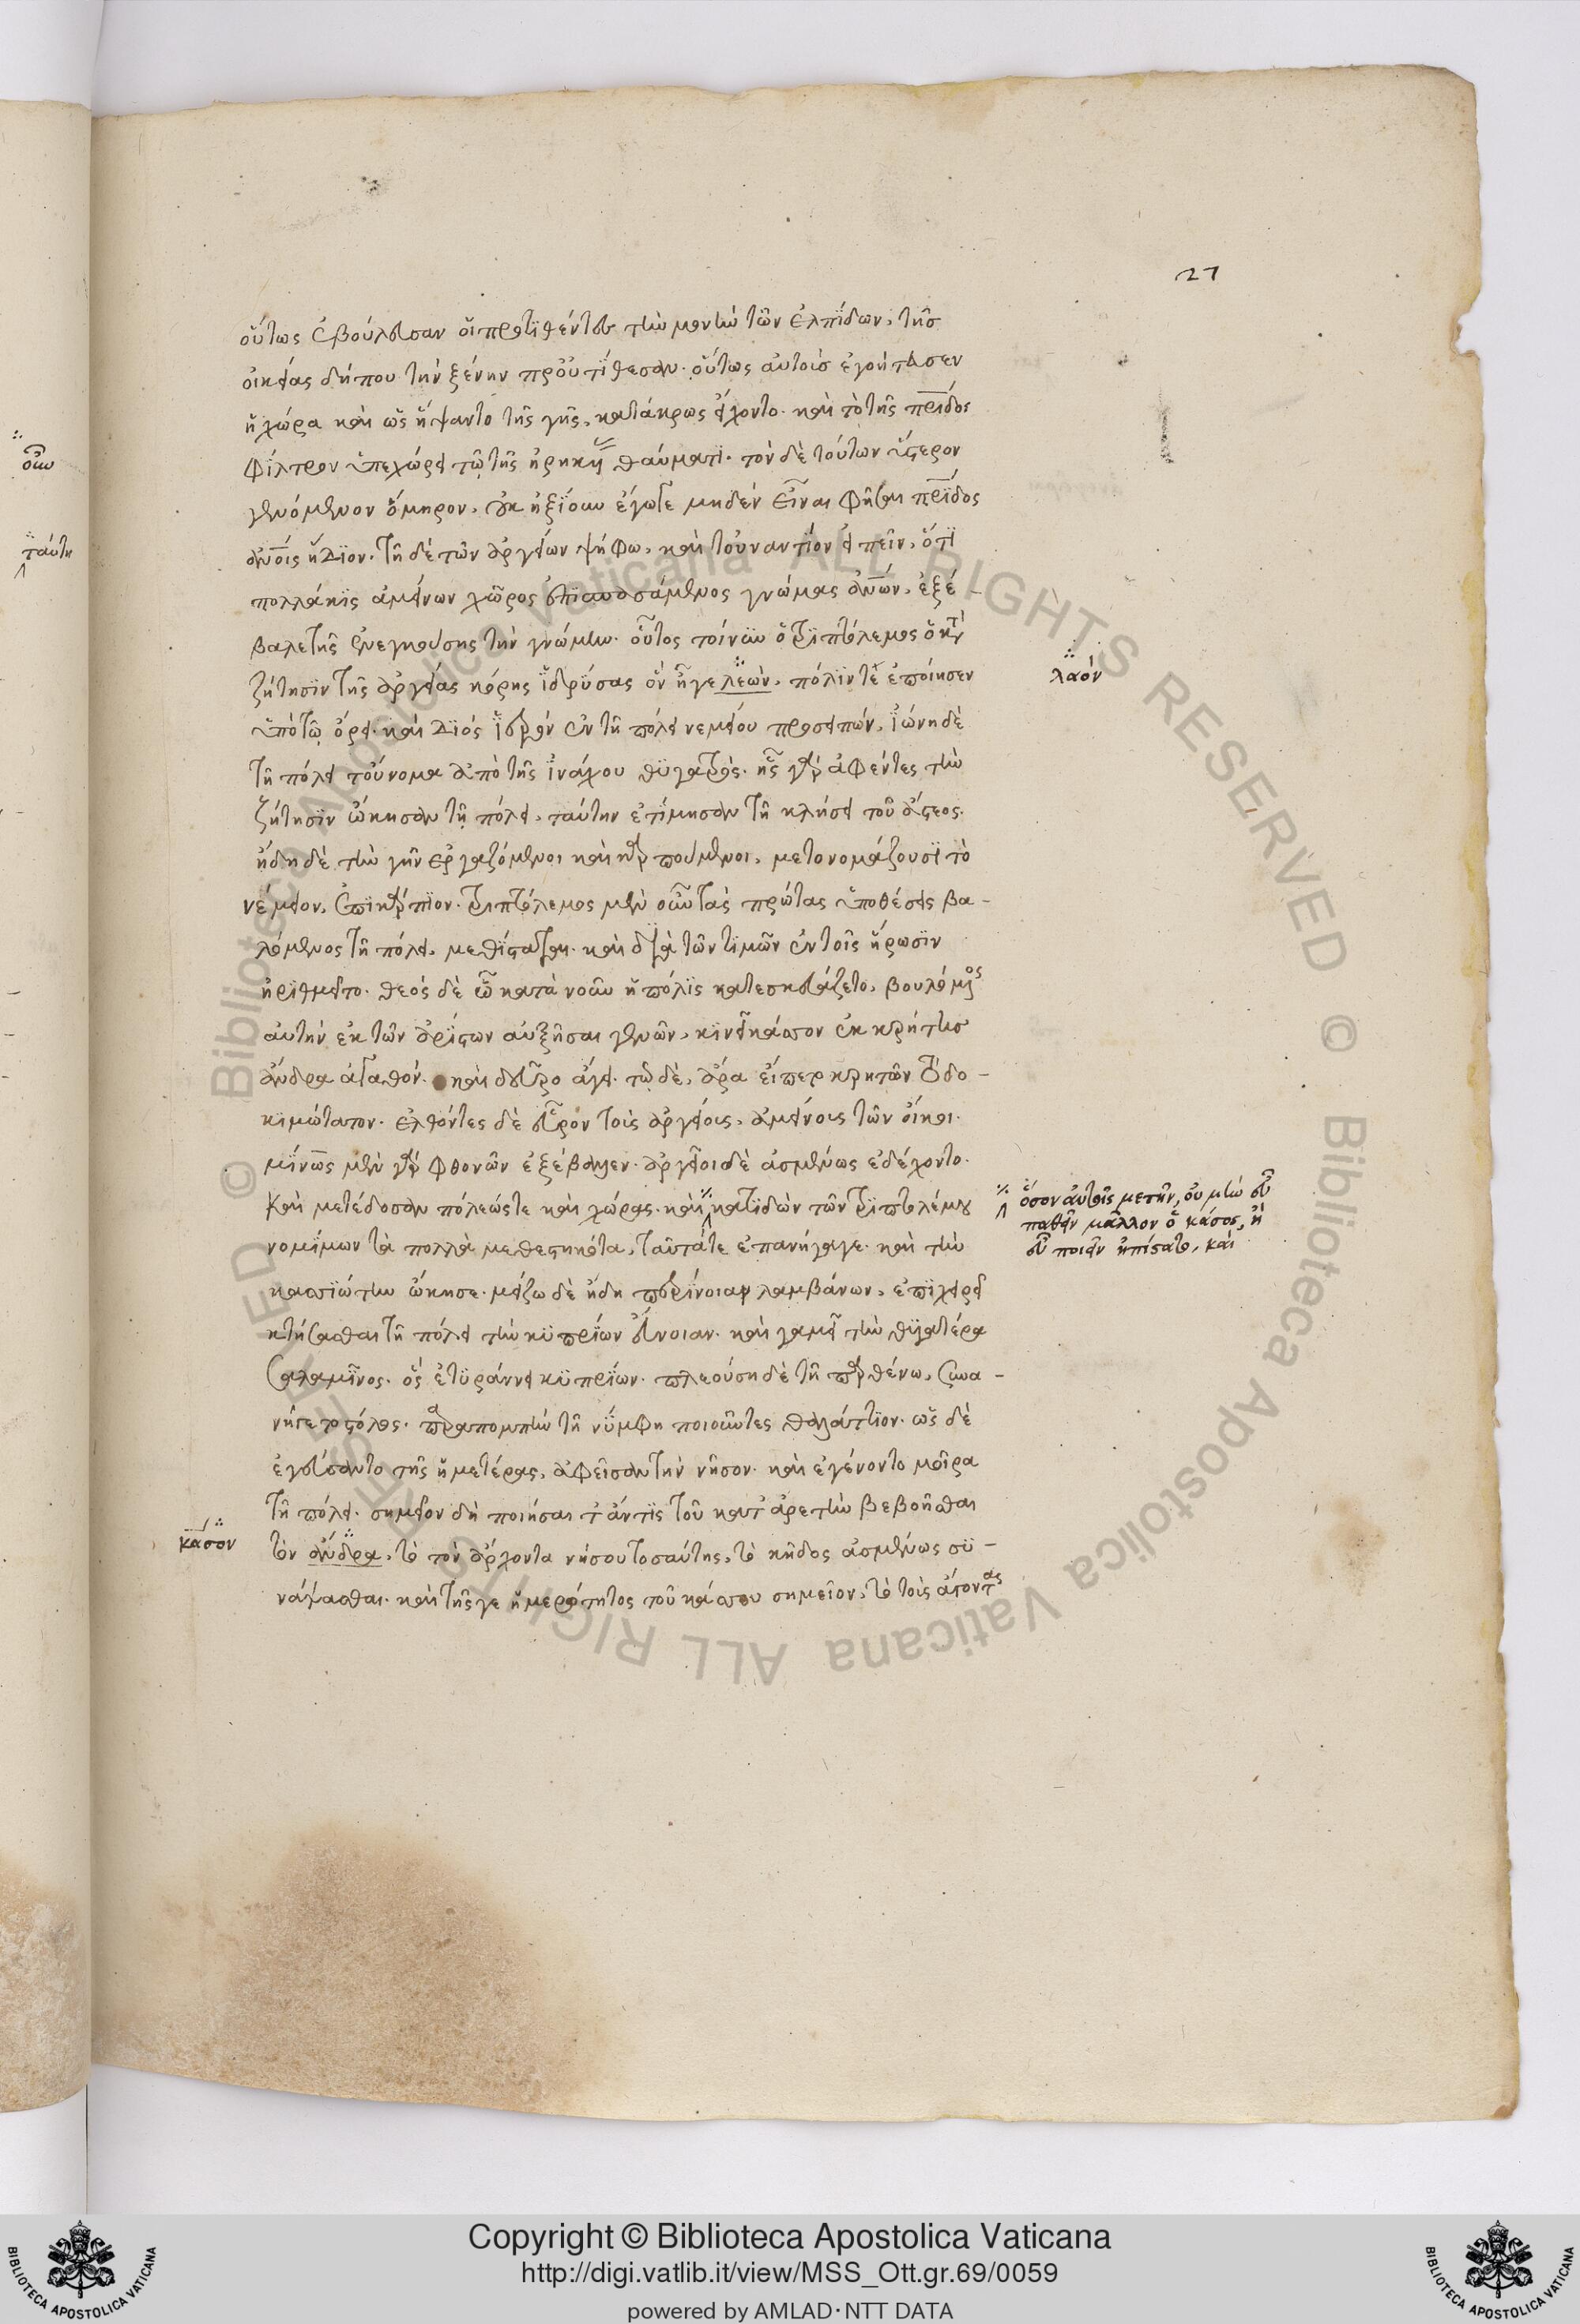 οὕτως ἐβούλευσαν οἱ προτιθέντες τὴν μονὴν τῶν ἐλπίδων, τῆς
οἰκείας δήπου τὴν ξένην προὐτίθεσαν. οὕτως αὐτοὺς ἐγοήτευσεν
ἡ χώρα καὶ ὡς ἥψαντο τῆς γῆς, κατάκρως εἴχοντο. καὶ τὸ τῆς πρίδος
φίλτρον ὑπεχώρει τῷ τῆς θαύματι. τὸν δὲ τούτων ὕστερον
γενόμενον ὅμηρον, οὐκ ἠξίουν ἔγωγε μηδὲν εἶναι φῆσαι πρίδος
ἀνοις ἥδιον. τῇ δὲ τῶν ἀργείων ψήφω, καὶ τοὐναντίον εἰπεῖν, ὅτι
πολλάκις ἀμείνων χῶρος ἐπιαυσάμενος γνώμας ἀνων, ἐξέ-
βαλε τῆς ἐνεγκούσης τὴν γνώμην. οὗτος τοίνυν ὁ τριπτόλεμος ὁ κτ
ζήτησιν τῆς ἀργείας κόρης ἱδρύσας ὃν ἦγε λεὼν, πόλιν τὲ ἐποίησεν
ὑπὸ τῷ ὄρει. καὶ διὸς ἱερὸν ἐν τῇ πόλει νεμείου προσειπών, ἰώνη δὲ
τῇ πόλει τοὔνομα ἀπὸ τῆς ἰνάχου θυγατρός. ἧς γὰρ ἀφέντες τὴν
ζήτησιν ὤκησαν τῇ πόλει, ταύτην ἐτίμησαν τῇ κλήσει τοῦ ἄστεος.
ἤδη δὲ τὴν γῆν ἐργαζόμενοι καὶ καρπούμενοι, μετονομάζουσι τὸ
νέμειον, ἐπικάρπιον. τριπτόλεμος μὲν οὖν τὰς πρώτας ὑποθέσεις βα-
λόμενος τῇ πόλει, μεθίσταται. καὶ διὰ τῶν τιμῶν ἐν τοῖς ἥρωσιν
ἠριθμεῖτο. θεὸς δὲ ὧ κατὰ νοῦν ἡ πόλις κατεσκευάζετο, βουλόμενος
αὐτὴν ἐκ τῶν ἀρίστων αὐξῆσαι γενῶν, κινεῖ κάσον ἐκ κρήτης
ἄνδρα ἀγαθόν. καὶ δεῦρο ἄγει. τῷ δὲ, ἄρα εἵπετο κρητῶν τὸ εὐδο-
κιμώτατον. ἐλθόντες δὲ εὗρον τοὺς ἀργείους, ἀμείνους τῶν οἴκοι.
μίνως μὲν γὰρ φθονῶν ἐξέβαλλεν. ἀργεῖοι δὲ ἀσμένως ἐδέχοντο.
καὶ μετέδοσαν πόλεώς τε καὶ χώρας. καὶ κατιδὼν τῶν τριπτολέμου
νομίμων τὰ πολλὰ μεθεστηκότα, ταῦτά τε ἐπανήγαγε. καὶ τὴν
κασιώτην ὤκησε. μείζω δὲ ἤδη περίνοιαν λαμβάνων, ἐπιχειρεῖ
κτήσασθαι τῇ πόλει τὴν κυπρίων εὔνοιαν. καὶ γαμεῖ τὴν θυγατέρα
σαλαμῖνος. ὃς ἐτυράννει κυπρίων. πλεούση δὲ τῇ παρθένω, συνα-
νήγετο στόλος. παραπομπὴν τῇ νύμφη ποιοῦντες θαλάττιον. ὡς δὲ
ἐγεύσαντο τῆς ἡμετέρας, ἀφεῖσαν τὴν νῆσον. καὶ ἐγένοντο μοῖρα
τῇ πόλει. σημεῖον δὴ ποιήσαι τ' ἄν τις τοῦ κατ' ἀρετὴν βεβοῆσθαι
τὸν ἄνδρα, τὸ τὸν ἄρχοντα νήσου τοσαύτης, τὸ κῆδος ἀσμένως συ-
νάψασθαι. καὶ τῆς γε ἡμερότητος τοῦ κάσου σημεῖον, τὸ τοὺς ἄγοντας
λαόν
ὅσον αὐτοῖς μετῆν, οὐ μὴν εὖ
παθεῖν μᾶλλον ὁ κάσος, ἢ
εὖ ποιεῖν ἠπίστατο, καὶ
κάσον
οὖν
ταύτη
27
Copyright © Biblioteca Apostolica Vaticana
http://digi.vatlib.it/view/MSS_Ott.gr.69/0059
powered by AMLAD·NTT DATA
BIBLIOTECA APOSTOLICA VATICANA
BIBLIOTECA APOSTOLICA VATICANA
© Biblioteca Apostolica Vaticana ALL RIGHTS RESERVED © Biblioteca Apostolica Vaticana ALL RIGHTS RESERVED